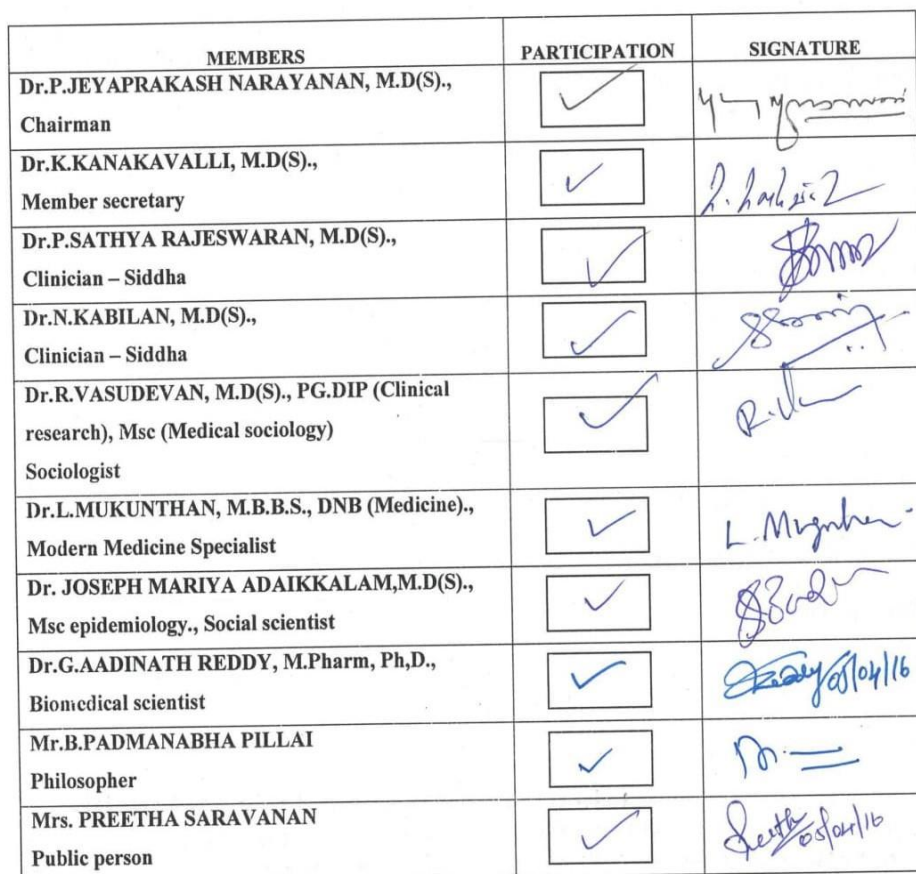 MEMBERS PARTICIPATION SIGNATURE
Dr.P.JEYAPRAKASH NARAYANAN, M.D(S).,
Chairman
Dr.K.KANAKAVALLI, M.D(S).,
Member secretary
Dr.P.SATHYA RAJESWARAN, M.D(S).,
Clinician – Siddha
Dr.N.KABILAN, M.D(S).,
Clinician – Siddha
Dr.R.VASUDEVAN, M.D(S)., PG.DIP (Clinical
research), Msc (Medical sociology)
Sociologist
Dr.L.MUKUNTHAN, M.B.B.S., DNB (Medicine).,
Modern Medicine Specialist
Dr. JOSEPH MARIYA ADAIKKALAM,M.D(S).,
Msc epidemiology., Social scientist
Dr.G.AADINATH REDDY, M.Pharm, Ph,D.,
Biomedical scientist 05/04/16
Mr.B.PADMANABHA PILLAI
Philosopher
Mrs. PREETHA SARAVANAN
Public person 05/04/16